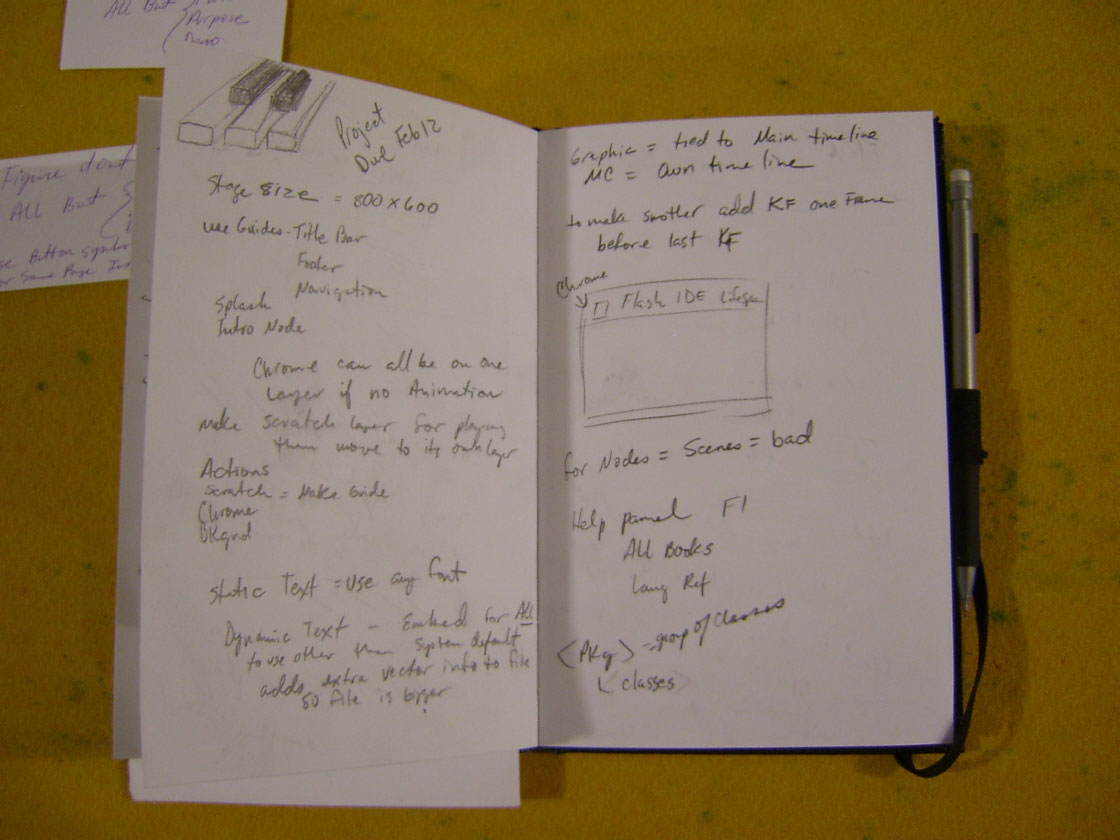 ALL But
Purpose
Demo
Figure
ALL But
se Button symbo
or Same Page
Project
Due Feb 12
Stage size = 800 x 600
use Guides - Title Bar
Footer
Navigation
Splash
Intro Node
Chrome can all be on one
Layer if no Animation
make scratch layer for playing
then move to its own layer
Actions
Scratch = Make Guide
Chrome
BKgnd
Static Text = Use any font
Dynamic Text - Embed for ALL
to use other than system default
adds extra vector info to file
so File is bigger
Graphic = tied to Main timeline
MC = Own time line
to make smother add KF one Frame
before last KF
Chrome
Flash IDE Lifespa
for Nodes = Scenes = bad
Help pamel F1
ALL Books
Lang Ref
<PKg> = group of Classes
classes